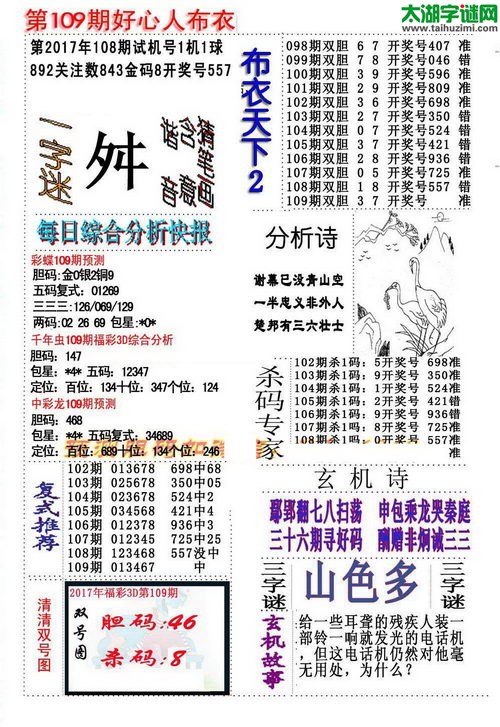 第109期好心人布衣
太湖字谜网
www.taihuzimi.com
第2017年108期试机号1机1球
892关注数843金码8开奖号557
一字迷
舛
猜笔画
含意
谐音
每日综合分析快报
彩蝶109期预测
胆码:金0银2铜9
五码复式: 01269
三三三:126/069/129
两码:02 26 69 包星:*0*
千年虫109期福彩3D综合分析
胆码: 147
包星: *4* 五码: 12347
定位: 百位: 134十位: 347个位: 124
中彩龙109期预测
胆码: 468
包星: *4* 五码复式: 34689
定位: 百位: 689十位: 134个位: 246
复式推荐
102期 013678 698中68
103期 025678 350中05
104期 023678 524中2
105期 034568 421中4
106期 012378 936中3
107期 012345 725中25
108期 123468 557没中
109期 013467 中
清清双号图
2017年福彩3D第109期
双号图
胆码:46
杀码:8
布衣天下2
098期双胆 6 7 开奖号407 准
099期双胆 7 8 开奖号046 错
100期双胆 3 1 开奖号596 错
101期双胆 2 9 开奖号809 准
102期双胆 3 6 开奖号698 准
103期双胆 2 7 开奖号350 错
104期双胆 0 7 开奖号524 错
105期双胆 3 7 开奖号421 错
106期双胆 2 8 开奖号936 错
107期双胆 0 5 开奖号725 准
108期双胆 1 8 开奖号557 错
109期双胆 3 7 开奖号 准
分析诗
谢幕已没青山空
一半忠义非外人
楚邦有三六壮士
杀码专家
102期杀1码: 5开奖号 698准
103期杀1码: 9开奖号 350准
104期杀1码: 1开奖号 524准
105期杀1码: 2开奖号 421错
106期杀1码: 9开奖号 936错
107期杀1码: 8开奖号 725准
108期杀1码: 0开奖号 557准
玄机诗
鄢郢翻七八扫荡 申包乘龙哭秦庭
三十六期寻好码 酬赠非炯诚三三
三字谜
山色多
三字谜
玄机故事
给一些耳聋的残疾人装一
部铃一响就发光的电话机
，但这电话机仍然对他毫
无用处，为什么？